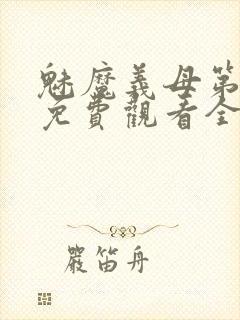 魅魔義母第
免費觀看全
嚴笛舟